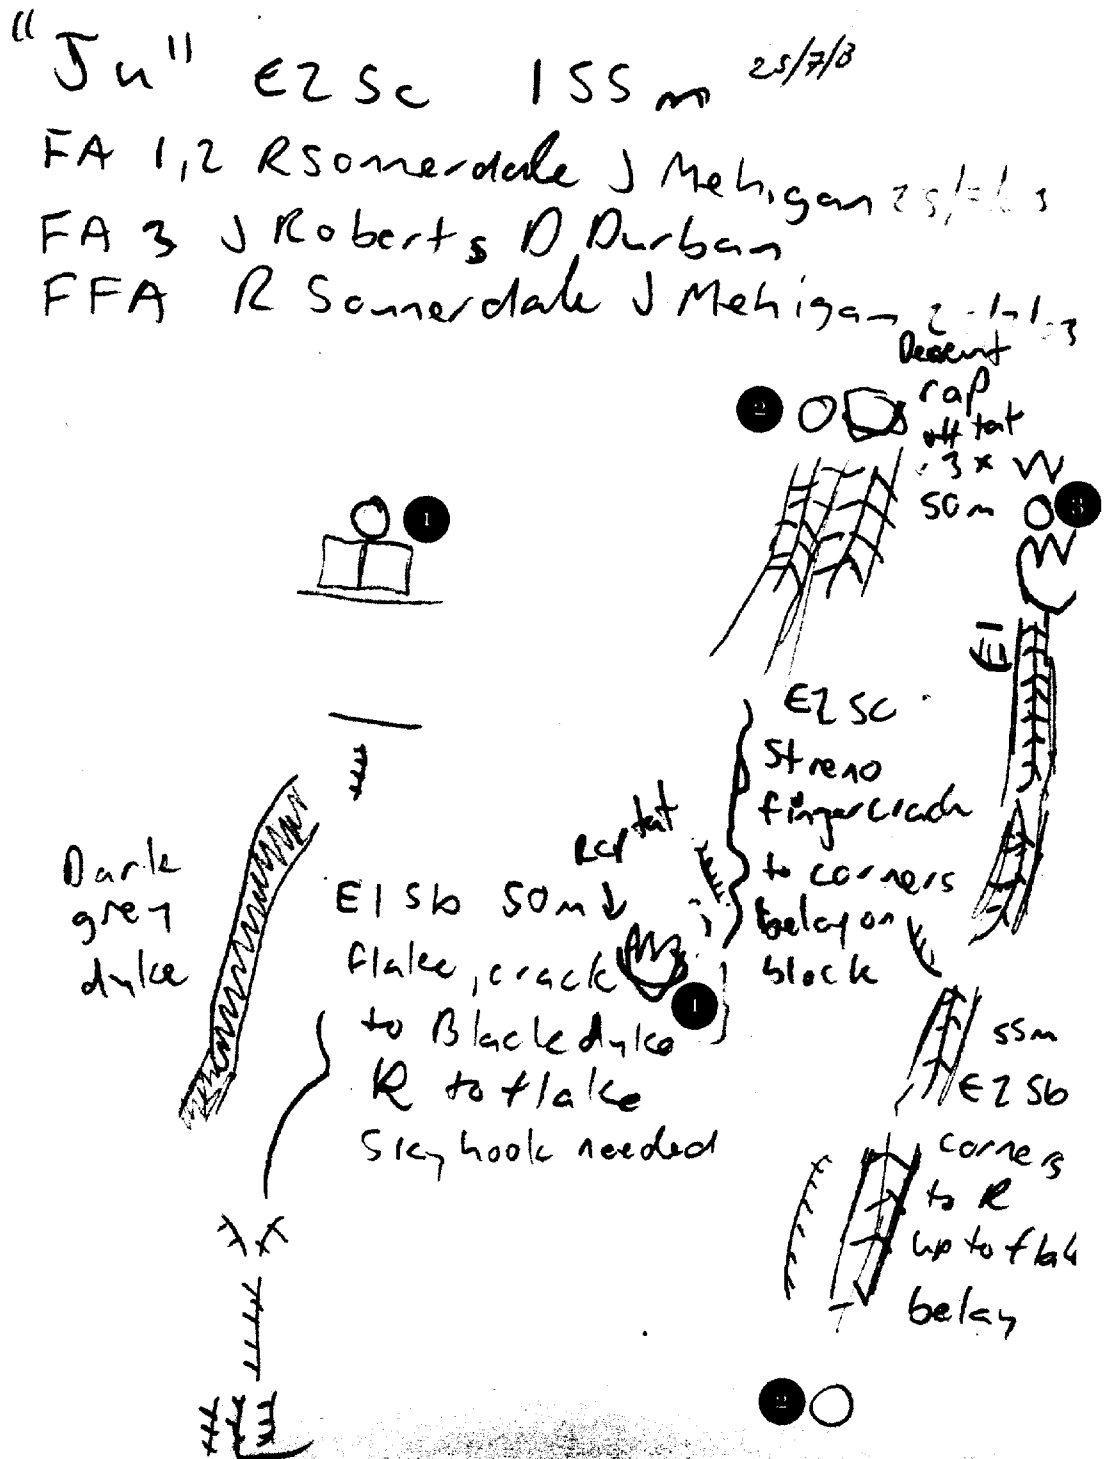 "Ju" E2 5c 155m 25/7/3
FA 1,2 R Sonnerdale J Mehigan
FA 3 J Roberts D Durban
FFA R Sonnerdale J Mehigan
Descent
rap
off tat
3x
50m
2
1
3
E1
E2 5c
Streno
fingercrack
to corners
belay on
block
Rap tat
Dark
grey
dyke
E1 5b 50m
flake, crack
to Black dyke
R to flake
Skyhook needed
1
55m
E2 5b
corners
to R
up to flak
belay
2